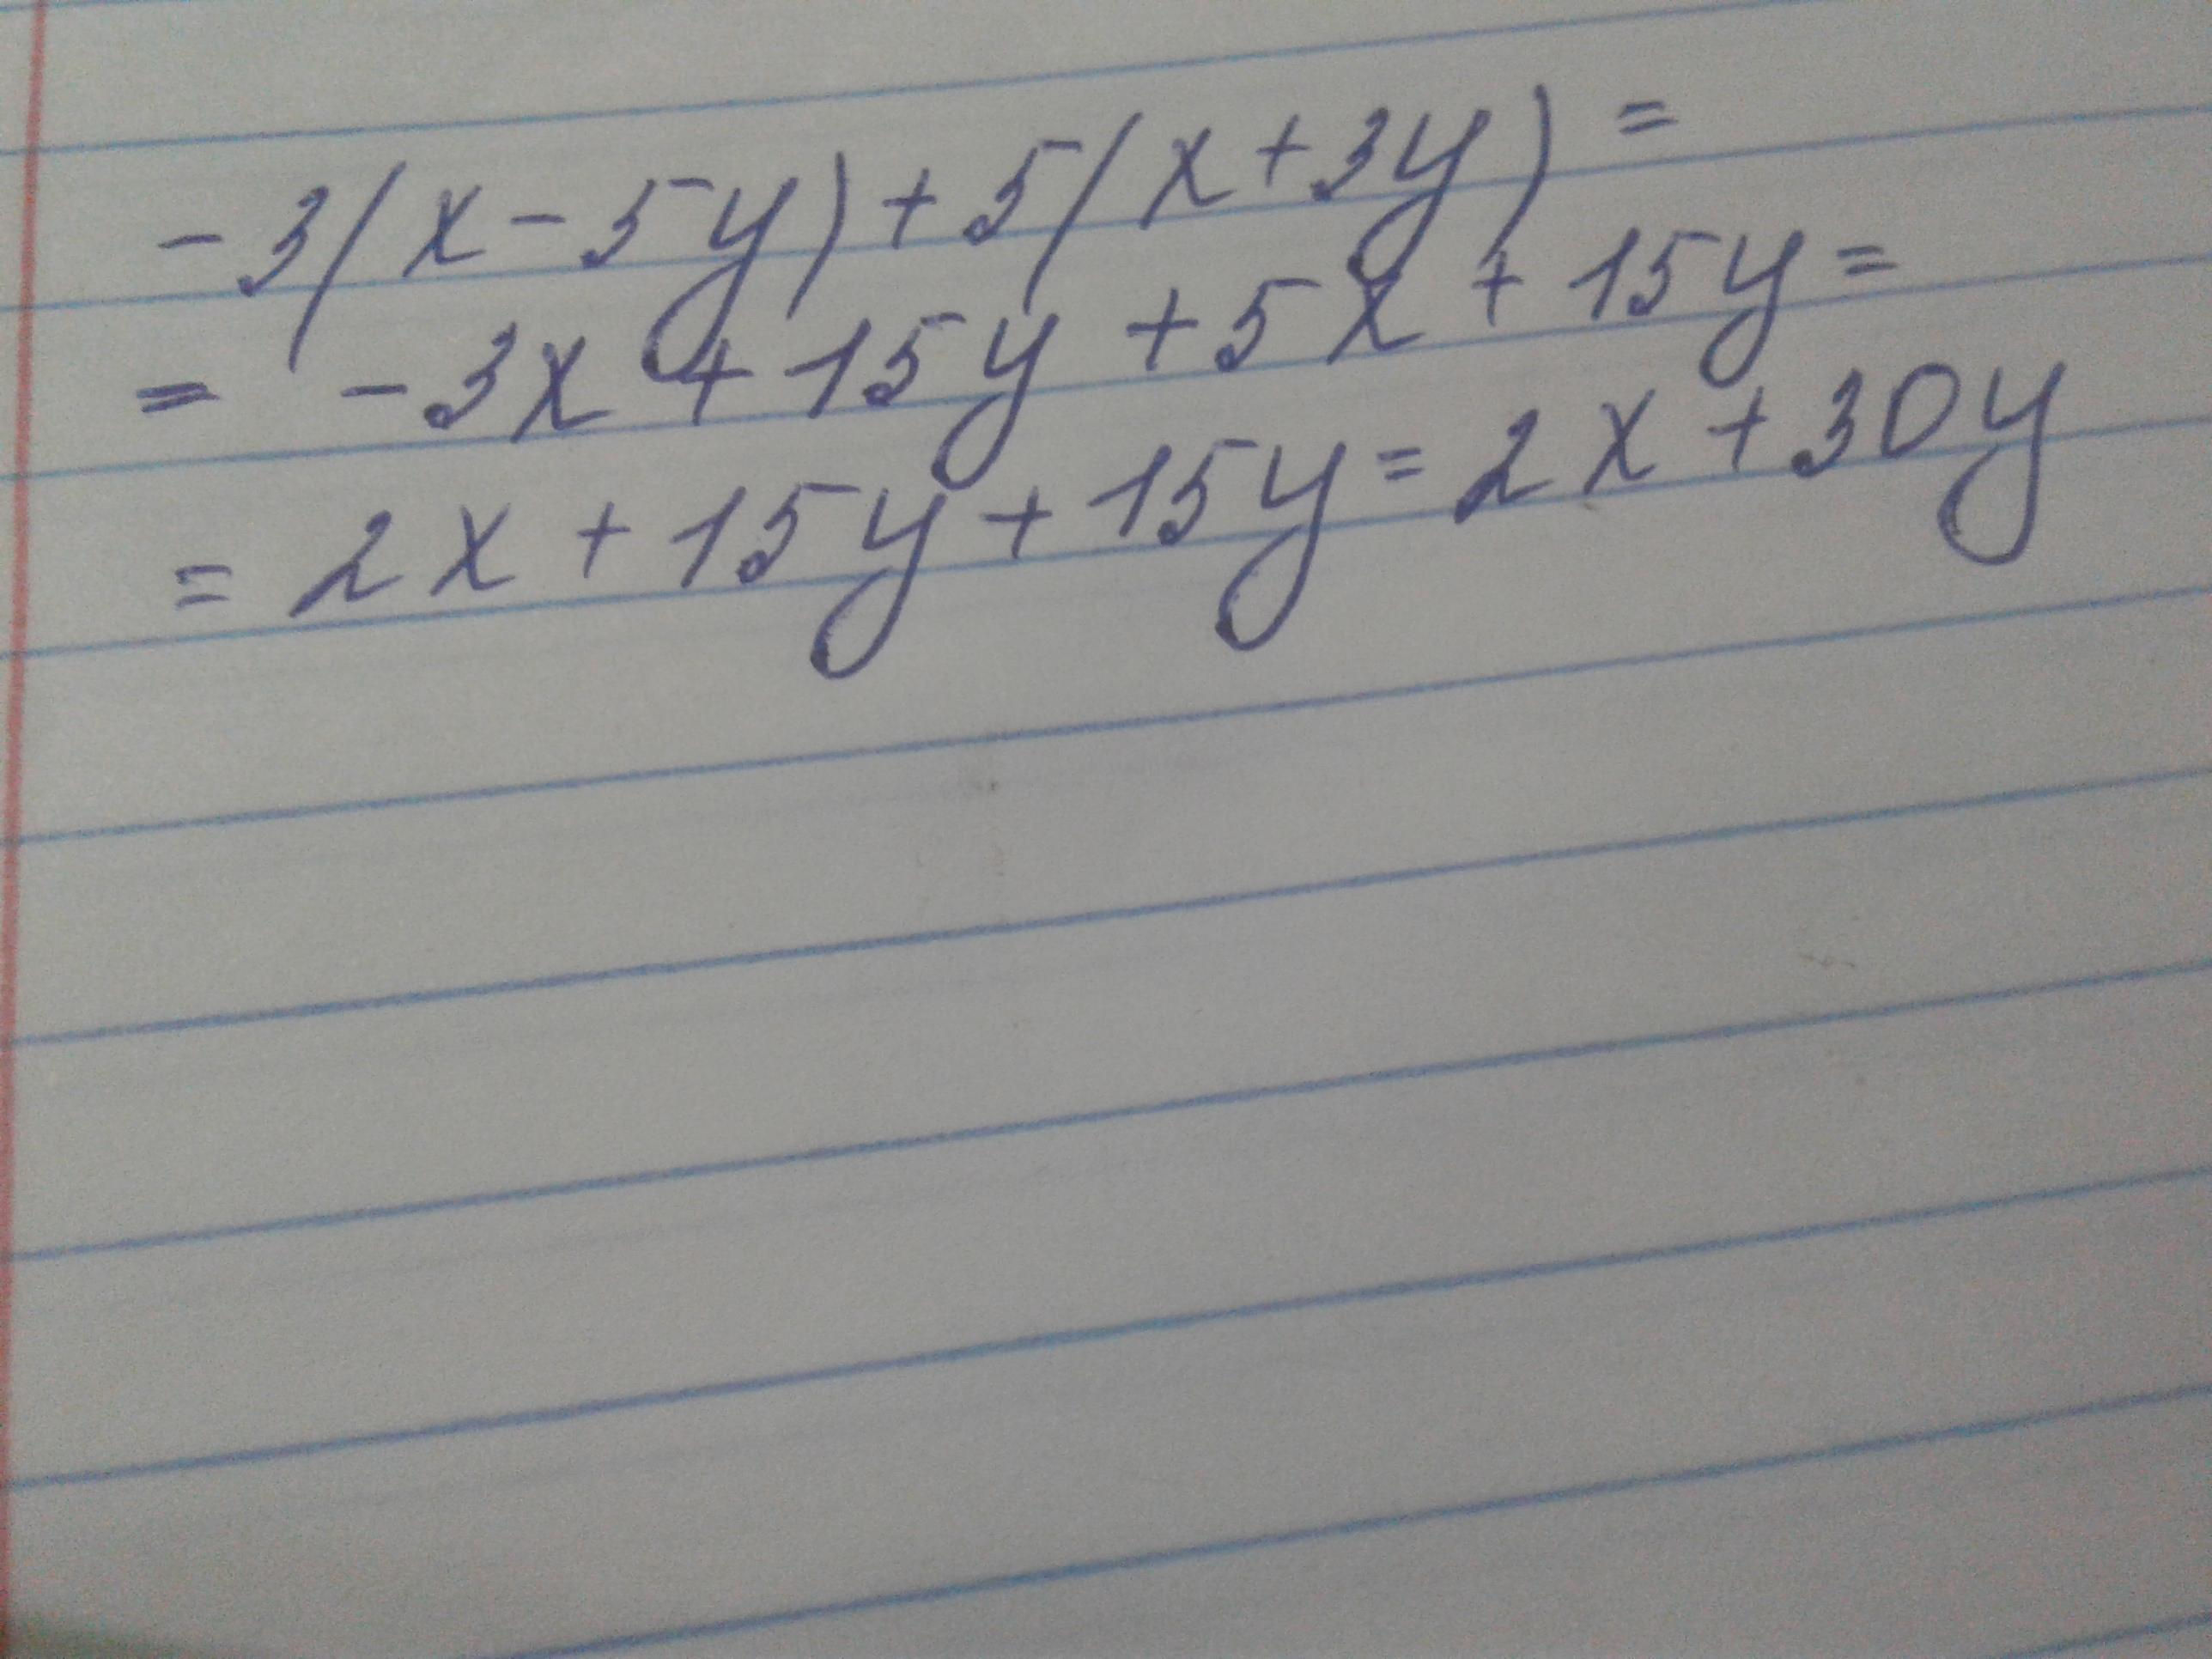 -3(x-5y)+5(x+3y)=
= -3x+15y+5x+15y=
=2x+15y+15y=2x+30y